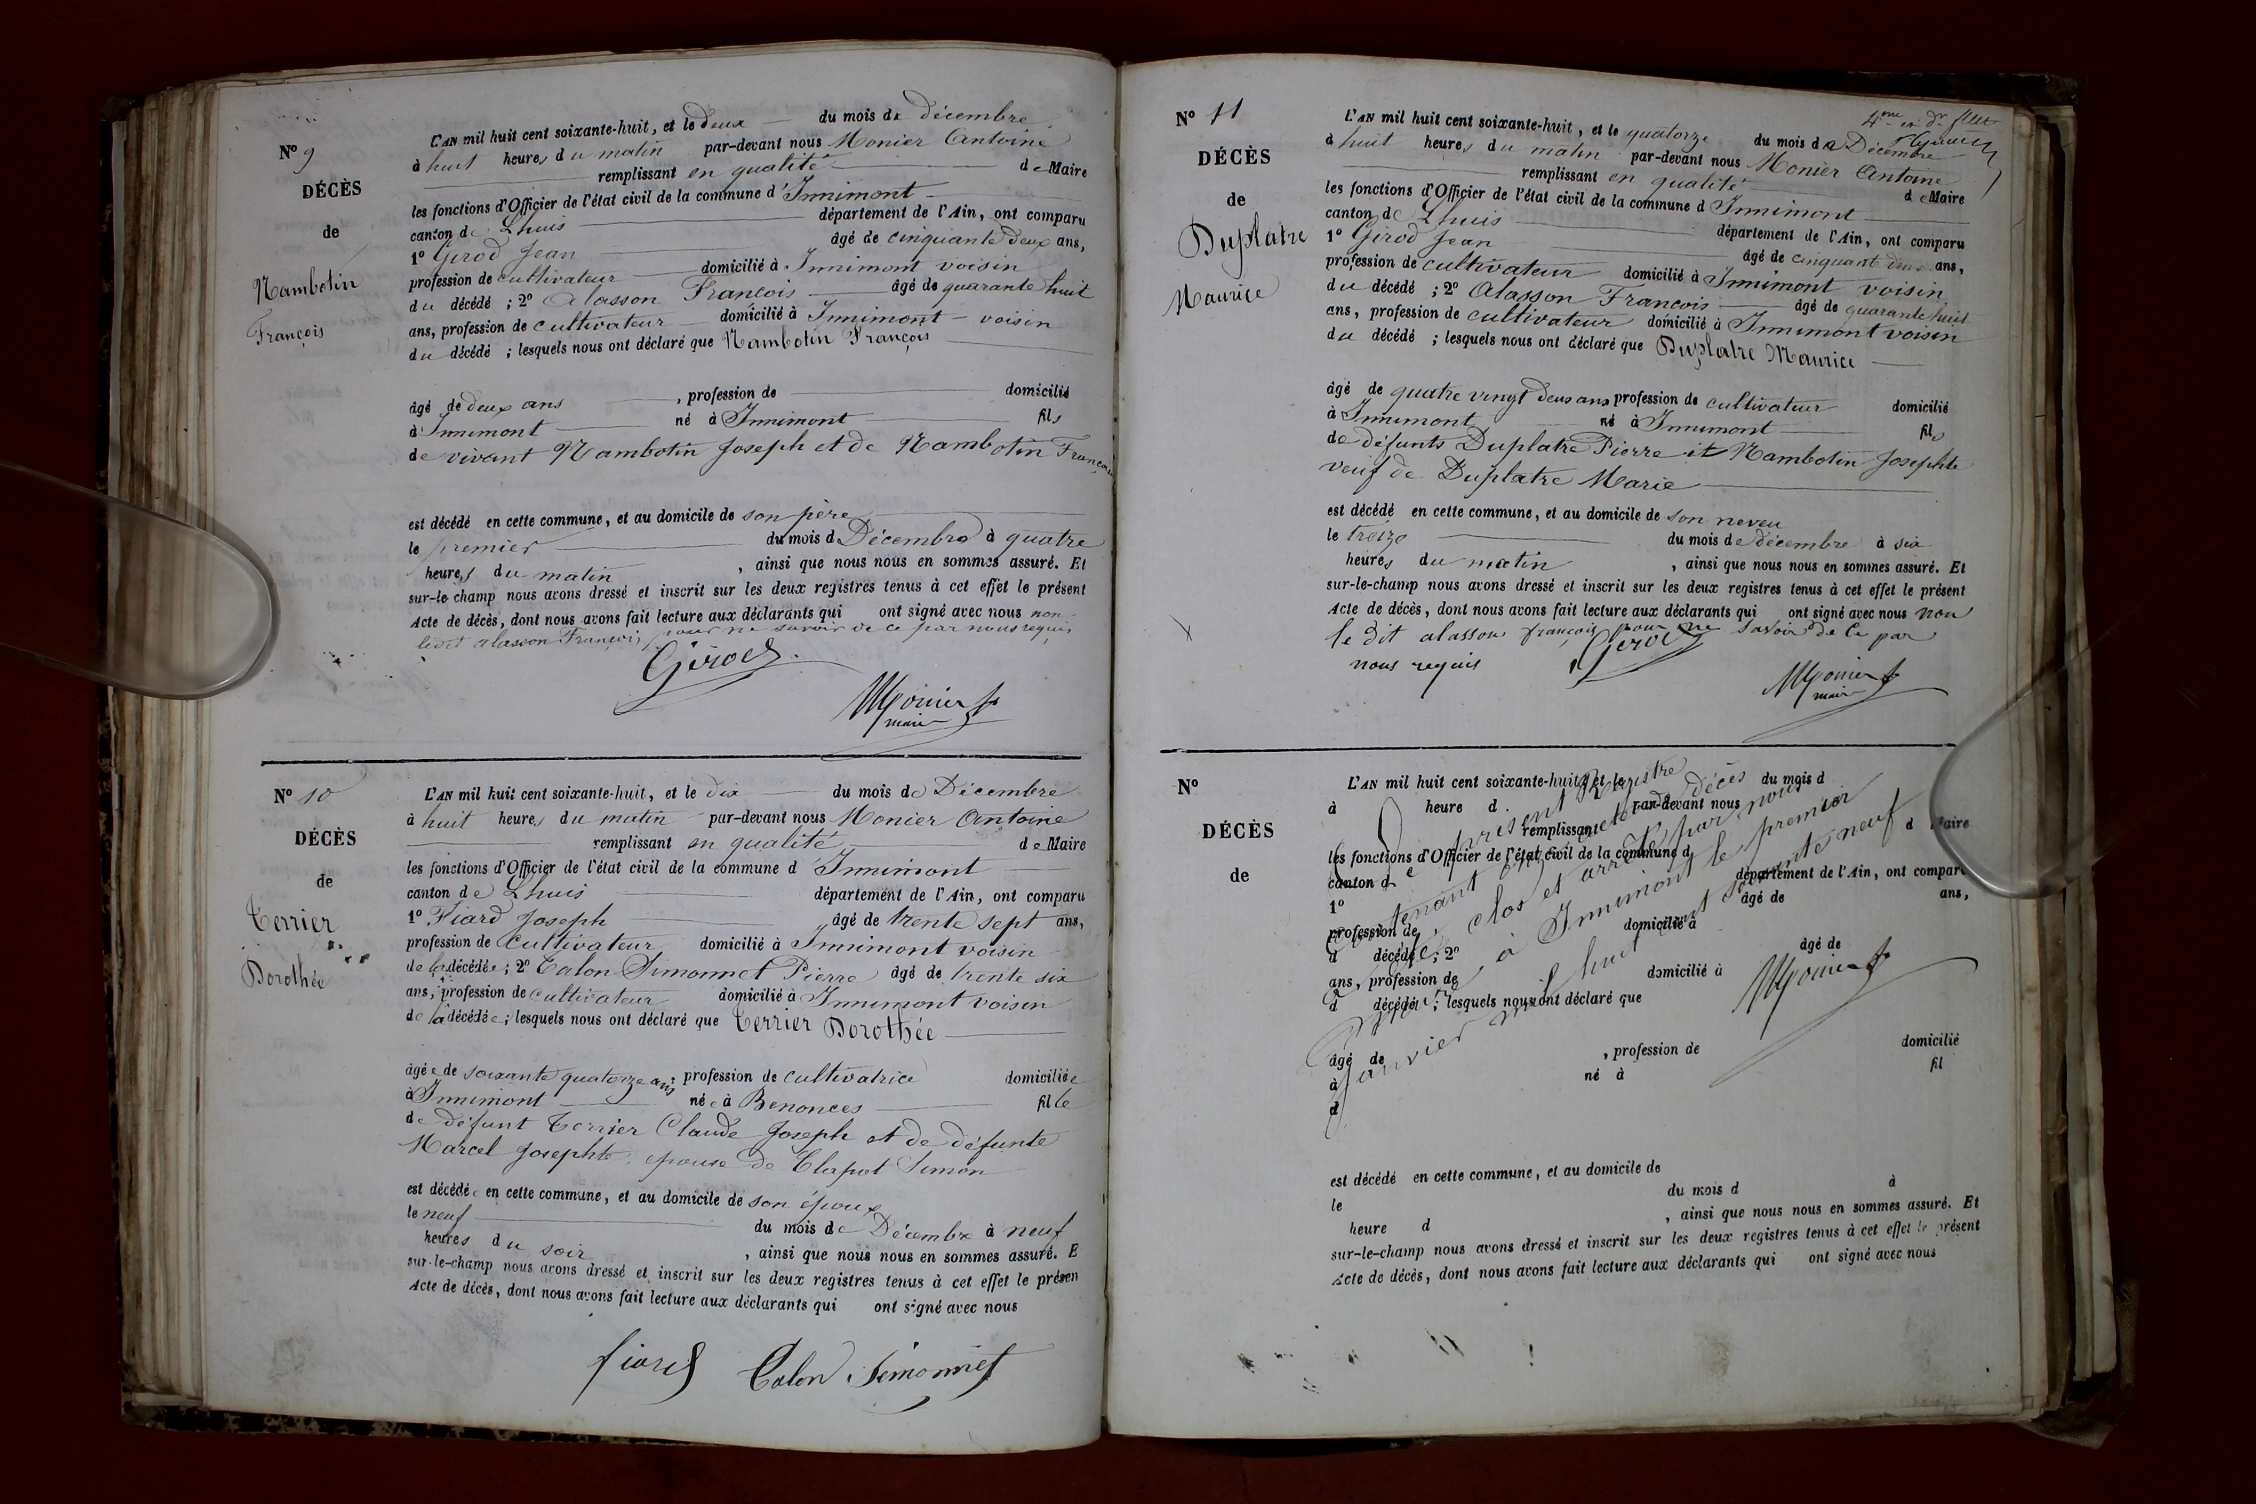 N° 9
DÉCÈS
de
Nambotin
François
L'AN mil huit cent soixante-huit, et le deux du mois de décembre
à huit heures du matin par-devant nous Monier Antoine
remplissant en qualité de Maire
les fonctions d'Officier de l'état civil de la commune d'Innimont
canton de Lhuis département de l'Ain, ont comparu
1° Girod Jean âgé de cinquante deux ans,
profession de cultivateur domicilié à Innimont voisin
du décédé ; 2° Alasson François âgé de quarante huit
ans, profession de cultivateur domicilié à Innimont voisin
du décédé ; lesquels nous ont déclaré que Nambotin François
âgé de deux ans , profession de domicilié
à Innimont né à Innimont fils
de vivant Nambotin Joseph et de Nambotin
est décédé en cette commune, et au domicile de son père
le premier du mois d Décembre à quatre
heures du matin , ainsi que nous nous en sommes assuré. Et
sur-le champ nous avons dressé et inscrit sur les deux registres tenus à cet effet le présent
Acte de décès, dont nous avons fait lecture aux déclarants qui ont signé avec nous non
ledit alasson François pour ne savoir de ce par nous requis
Girod
Monier
maire
N° 10
DÉCÈS
de
Terrier
Dorothée
L'AN mil huit cent soixante-huit, et le dix du mois de Décembre
à huit heures du matin par-devant nous Monier Antoine
remplissant en qualité de Maire
les fonctions d'Officier de l'état civil de la commune d'Innimont
canton de Lhuis département de l'Ain, ont comparu
1° Fiard Joseph âgé de trente sept ans,
profession de cultivateur domicilié à Innimont voisin
de la décédée ; 2° Calon Simonnet Pierre âgé de trente six
ans, profession de cultivateur domicilié à Innimont voisin
de la décédée ; lesquels nous ont déclaré que Terrier Dorothée
âgée de soixante quatorze ans, profession de cultivatrice domiciliée
à Innimont née à Benonces fille
de défunt Terrier Claude Joseph et de défunte
Marcel Josephte épouse de Clapot Simon
est décédée en cette commune, et au domicile de son époux
le neuf du mois de Décembre à neuf
heures du soir , ainsi que nous nous en sommes assuré. E
sur-le-champ nous avons dressé et inscrit sur les deux registres tenus à cet effet le présen
Acte de décès, dont nous avons fait lecture aux déclarants qui ont signé avec nous
fiard Calon Simonnet
4me et dr fllet
N° 11
DÉCÈS
de
Duplatre
Maurice
L'AN mil huit cent soixante-huit, et le quatorze du mois de Décembre
à huit heures du matin par-devant nous Monier Antoine
remplissant en qualité de Maire
les fonctions d'Officier de l'état civil de la commune d Innimont
canton de Lhuis département de l'Ain, ont comparu
1° Girod Jean âgé de cinquante deux ans,
profession de cultivateur domicilié à Innimont voisin
du décédé ; 2° Alasson François âgé de quarante huit
ans, profession de cultivateur domicilié à Innimont voisin
du décédé ; lesquels nous ont déclaré que Duplatre Maurice
âgé de quatre vingt deux ans profession de cultivateur domicilié
à Innimont né à Innimont fils
de défunts Duplatre Pierre et Nambotin Josephte
veuf de Duplatre Marie
est décédé en cette commune, et au domicile de son neveu
le treize du mois de décembre à six
heures du matin , ainsi que nous nous en sommes assuré. Et
sur-le-champ nous avons dressé et inscrit sur les deux registres tenus à cet effet le présent
Acte de décès, dont nous avons fait lecture aux déclarants qui ont signé avec nous non
le dit alasson françois pour ne savoir de ce par
nous requis
Girod
Monier
maire
N°
DÉCÈS
de
L'AN mil huit cent soixante-huit, et le du mois d
à heure d par-devant nous
remplissant d Maire
les fonctions d'Officier de l'état civil de la commune d
canton d département de l'Ain, ont comparu
1° âgé de ans,
profession de domicilié à
d décédé ; 2° âgé de
ans, profession de domicilié à
d décédé ; lesquels nous ont déclaré que
âgé de , profession de domicilié
à né à fil
d
Le présent Registre
Contenant onze actes de décès
clos et arrêté par nous
à Innimont le premier
Janvier mil huit cent soixante neuf
Monier
est décédé en cette commune, et au domicile de
le du mois d à
heure d , ainsi que nous nous en sommes assuré. Et
sur-le-champ nous avons dressé et inscrit sur les deux registres tenus à cet effet le présent
Acte de décès, dont nous avons fait lecture aux déclarants qui ont signé avec nous